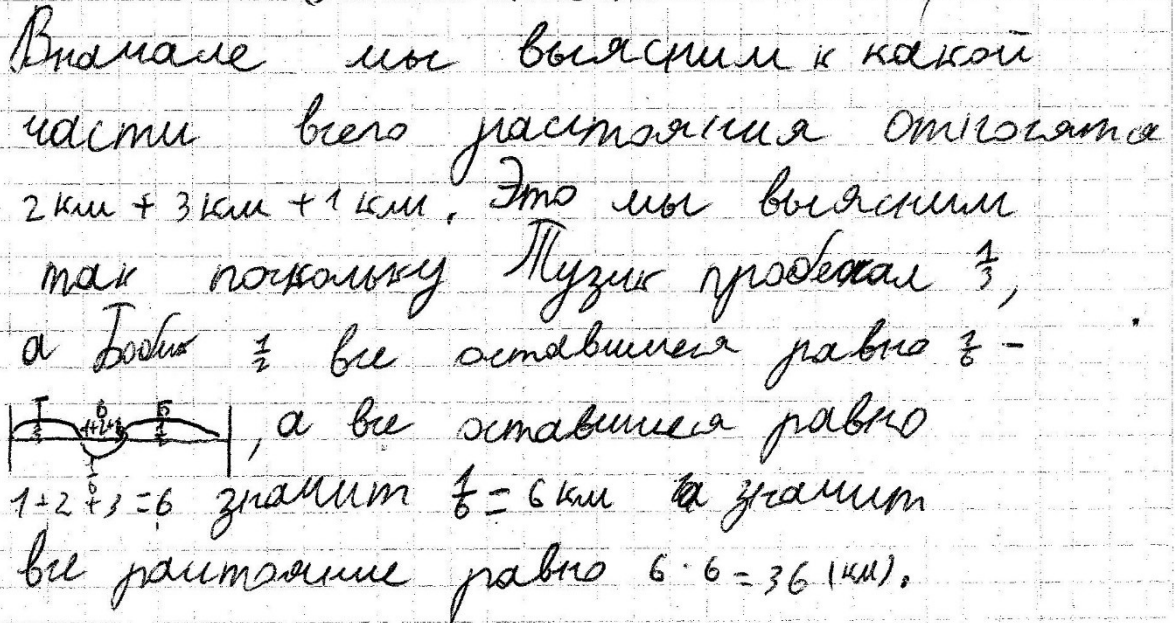 Вначале мы выясним к какой
части всего расстояния относятся
2 км + 3 км + 1 км. Это мы выясним
так поскольку Тузик пробежал 1/3,
а Бобик 1/2 все оставшиеся равно 1/6 -
Т 6 1+2+3 Б 1/3 1/2 1/6, а все оставшиеся равно
1+2+3=6 значит 1/6 = 6 км а значит
все расстояние равно 6 · 6 = 36 (км).